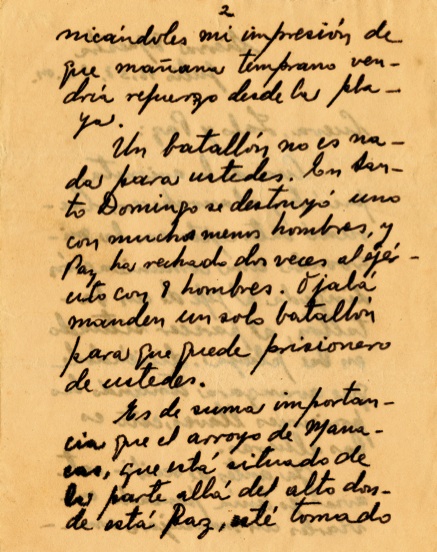 2
nicándoles mi impresión de
que mañana temprano ven-
dría refuerzo desde la pla-
ya.
Un batallón no es na-
da para ustedes. En San-
to Domingo se destruyó uno
con muchos menos hombres, y
Paz ha rechado dos veces al ejér-
cito con 8 hombres. Ojalá
manden un solo batallón
para que quede prisionero
de ustedes.
Es de suma importan-
cia que el arroyo de Mana-
cas, que está situado de
la parte allá del alto don-
de está Paz, esté tomado